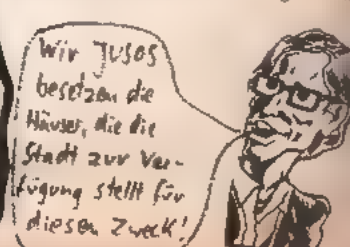 Wir JUSOS
besetzen die
Häuser, die die
Stadt zur Ver-
fügung stellt für
diesen Zweck!